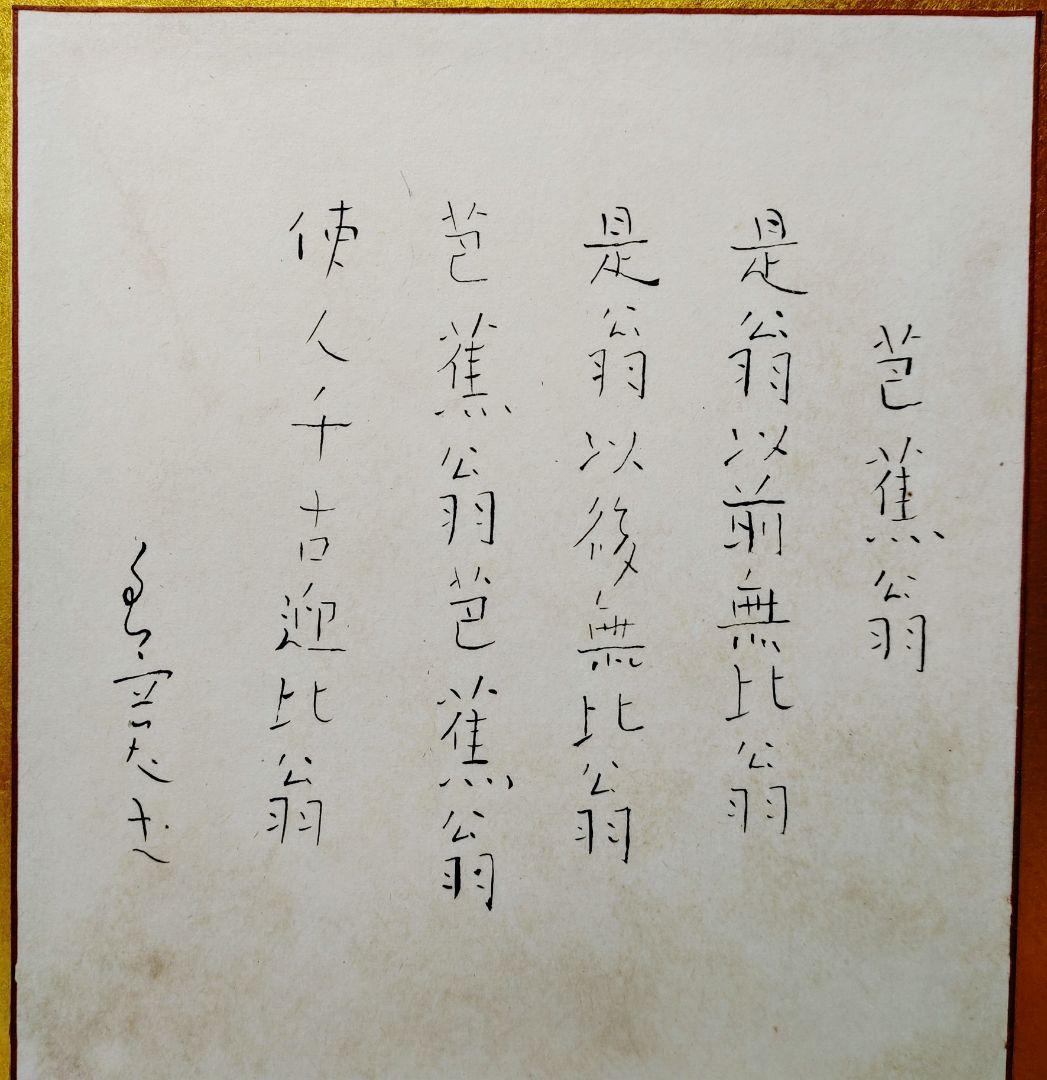 芭蕉翁
是翁以前無此翁
是翁以後無此翁
芭蕉翁芭蕉翁
使人千古迎此翁
良寛書